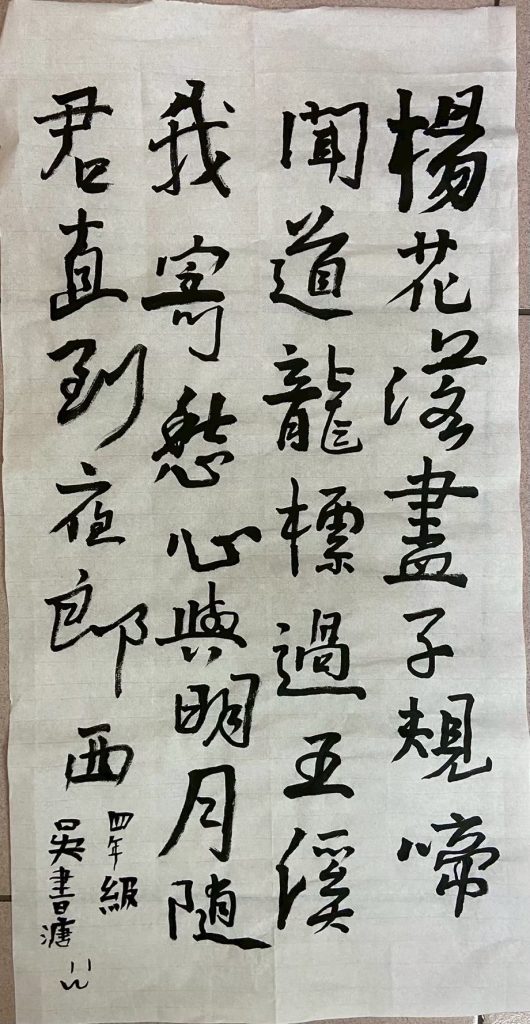 楊花落盡子規啼
聞道龍標過五溪
我寄愁心與明月隨
君直到夜郎西
四年級
吳書瀍